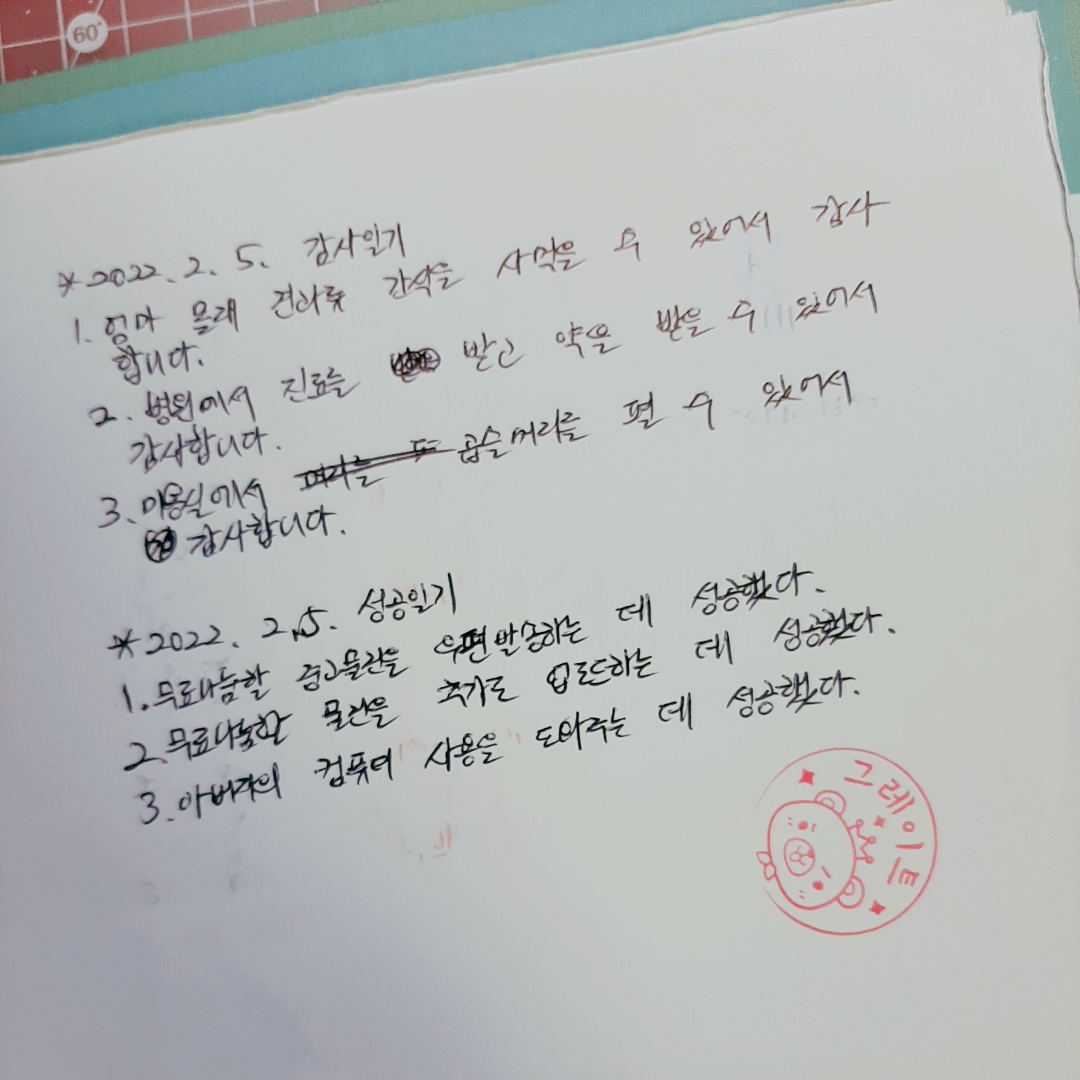 60°
*2022. 2. 5. 감사일기
1. 엄마 몰래 견과류 간식을 사먹을 수 있어서 감사
합니다.
2. 병원에서 진료를 받고 약을 받을 수 있어서
감사합니다.
3. 미용실에서 머리를 또 곱슬머리를 펼 수 있어서
감사합니다.
*2022. 2. 5. 성공일기
1. 무료나눔할 중고물건을 우편발송하는 데 성공했다.
2. 무료나눔할 물건을 추가로 업로드하는 데 성공했다.
3. 아버지의 컴퓨터 사용을 도와주는 데 성공했다.
그레이트